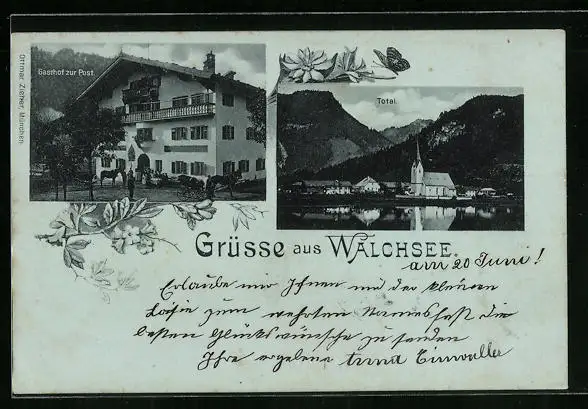 Ottmar Zieher, München.
Gasthof zur Post.
Total.
Grüsse aus WALCHSEE.
am 20 Juni!
Erlaube mir Ihnen und der kleinen
zum werthen Namensfest die
besten Glückswünsche zu senden
Ihre ergebene